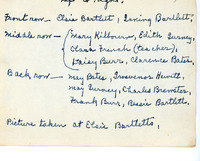 Front row — Elsie Bartlett, Irving Bartlett,
Middle row — Mary Kilbourn, Edith Gurney,
Clara French (teacher),
Daisy Burr, Clarence Bates,
Back row — May Bates, Grosvenor Hewitt,
May Gurney, Charles Brewster,
Frank Burr, Bessie Bartlett,
Picture taken at Elsie Bartletts,